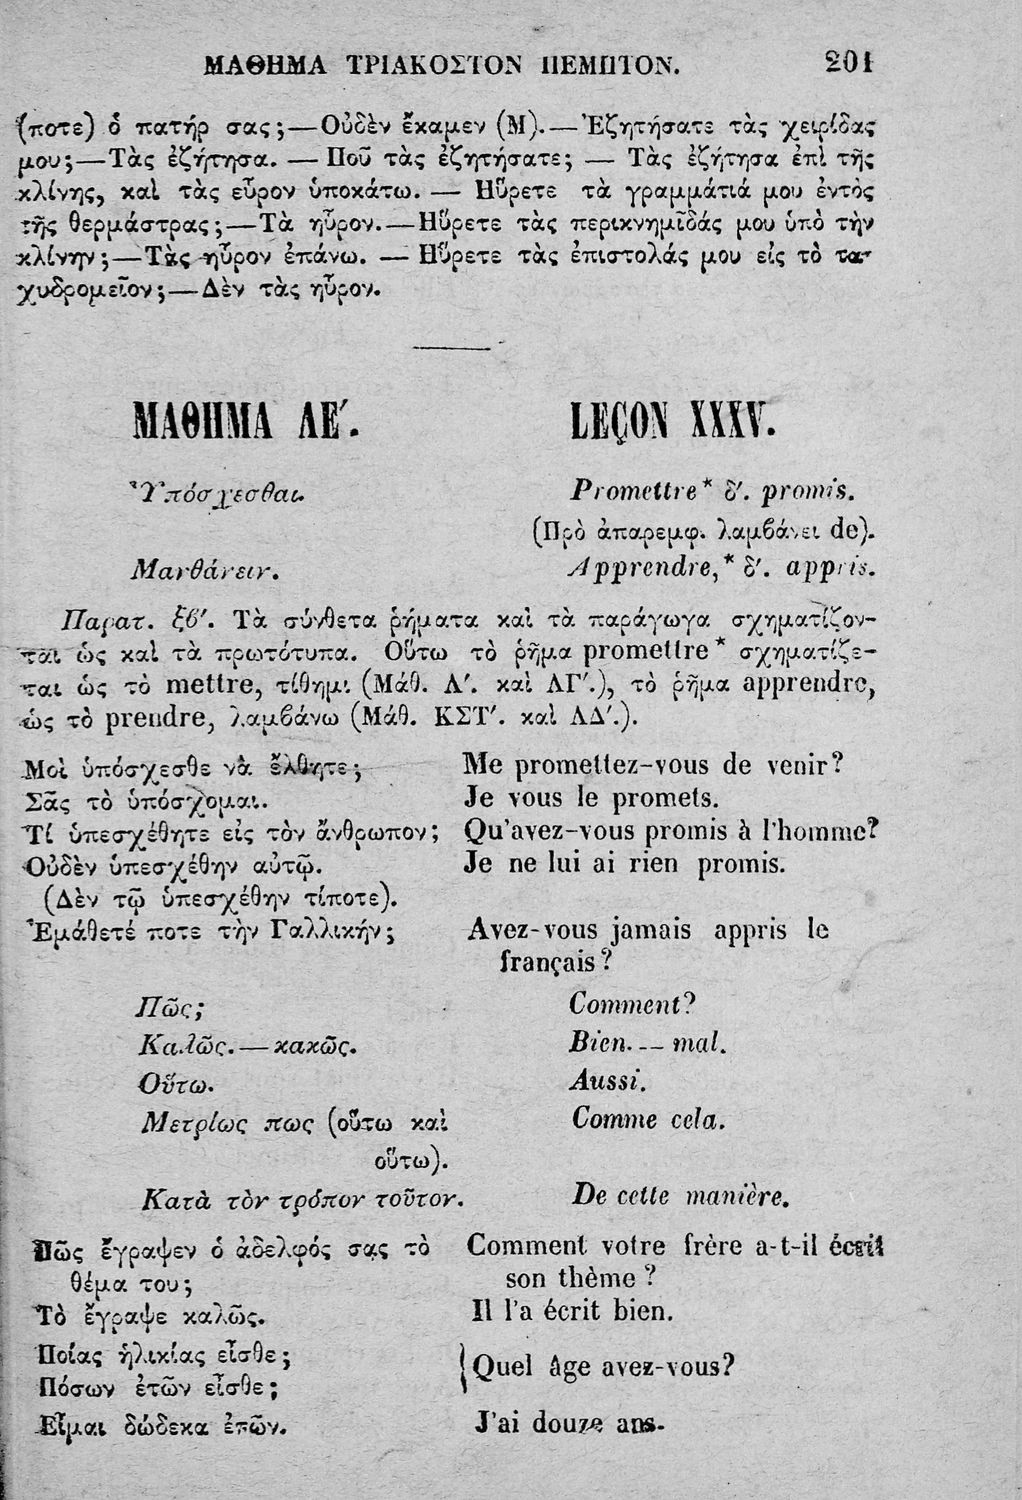 ΜΑΘΗΜΑ ΤΡΙΑΚΟΣΤΟΝ ΠΕΜΠΤΟΝ. 201
(ποτε) ὁ πατήρ σας;—Οὐδὲν ἔκαμεν (Μ).—Ἐζητήσατε τὰς χειρίδας
μου;—Τὰς ἐζήτησα. — Ποῦ τὰς ἐζητήσατε; — Τὰς ἐζήτησα ἐπὶ τῆς
κλίνης, καὶ τὰς εὗρον ὑποκάτω. — Ηὕρετε τὰ γραμμάτιά μου ἐντὸς
τῆς θερμάστρας;—Τὰ ηὗρον.—Ηὕρετε τὰς περικνημῖδάς μου ὑπὸ τὴν
κλίνην;—Τὰς ηὗρον ἐπάνω. — Ηὕρετε τὰς ἐπιστολάς μου εἰς τὸ τα-
χυδρομεῖον;—Δὲν τὰς ηὗρον.
ΜΑΘΗΜΑ ΛΕ΄. LEÇON XXXV.
Ὑπόσχεσθαι. Promettre* δ΄. promis.
(Πρὸ ἀπαρεμφ. λαμβάνει de).
Μανθάνειν. Apprendre,* δ΄. appris.
Παρατ. ξβ΄. Τὰ σύνθετα ῥήματα καὶ τὰ παράγωγα σχηματίζον-
ται ὡς καὶ τὰ πρωτότυπα. Οὕτω τὸ ῥῆμα promettre* σχηματίζε-
ται ὡς τὸ mettre, τίθημι (Μάθ. Λ΄. καὶ ΛΓ΄.), τὸ ῥῆμα apprendre,
ὡς τὸ prendre, λαμβάνω (Μάθ. ΚΣΤ΄. καὶ ΛΔ΄.).
Μοὶ ὑπόσχεσθε νὰ ἔλθητε; Me promettez-vous de venir?
Σᾶς τὸ ὑπόσχομαι. Je vous le promets.
Τί ὑπεσχέθητε εἰς τὸν ἄνθρωπον; Qu'avez-vous promis à l'homme?
Οὐδὲν ὑπεσχέθην αὐτῷ. Je ne lui ai rien promis.
(Δὲν τῷ ὑπεσχέθην τίποτε).
Ἐμάθετέ ποτε τὴν Γαλλικήν; Avez-vous jamais appris le
français?
Πῶς; Comment?
Καλῶς.—κακῶς. Bien. — mal.
Οὕτω. Aussi.
Μετρίως πως (οὕτω καὶ Comme cela.
οὕτω).
Κατὰ τὸν τρόπον τοῦτον. De cette manière.
Πῶς ἔγραψεν ὁ ἀδελφός σας τὸ Comment votre frère a-t-il écrit
θέμα του; son thème?
Τὸ ἔγραψε καλῶς. Il l'a écrit bien.
Ποίας ἡλικίας εἶσθε;
Πόσων ἐτῶν εἶσθε; Quel âge avez-vous?
Εἶμαι δώδεκα ἐτῶν. J'ai douze ans.